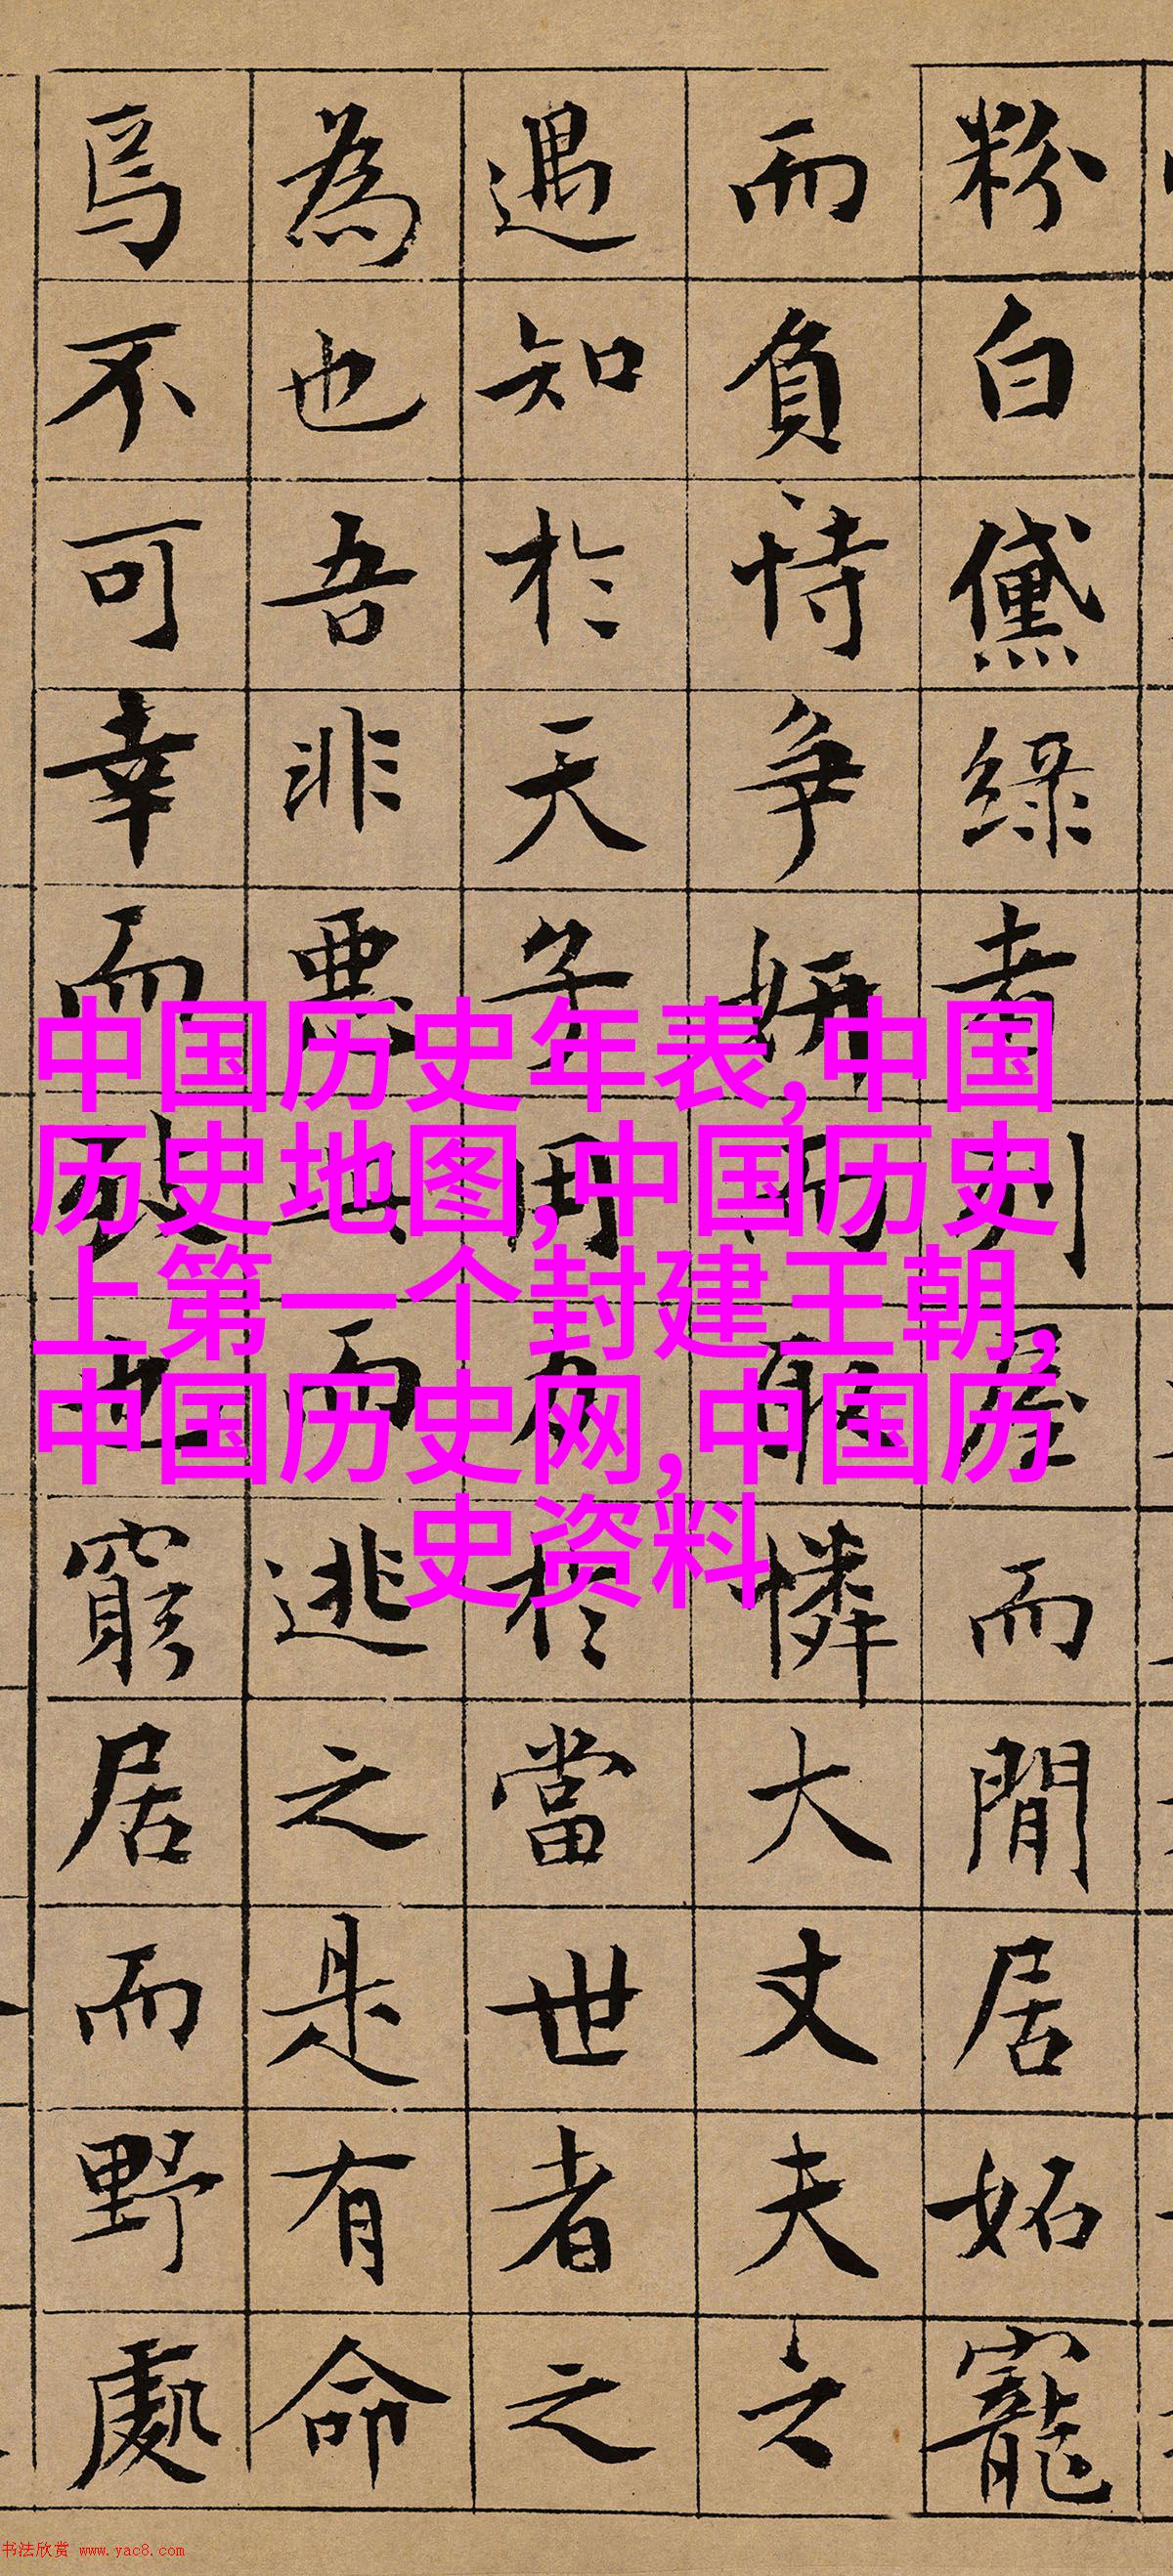 粉白黛綠者列屋而閒居妬寵
而負恃爭妍而取憐大丈夫之
遇知於天子用力於當世者之
為也吾非惡此而逃之是有命
焉不可幸而致也窮居而野處
中国历史年表,中国
历史地图,中国历史
上第一个封建王朝,
中国历史网,中国历
史资料
书法欣赏 www.yac8.com